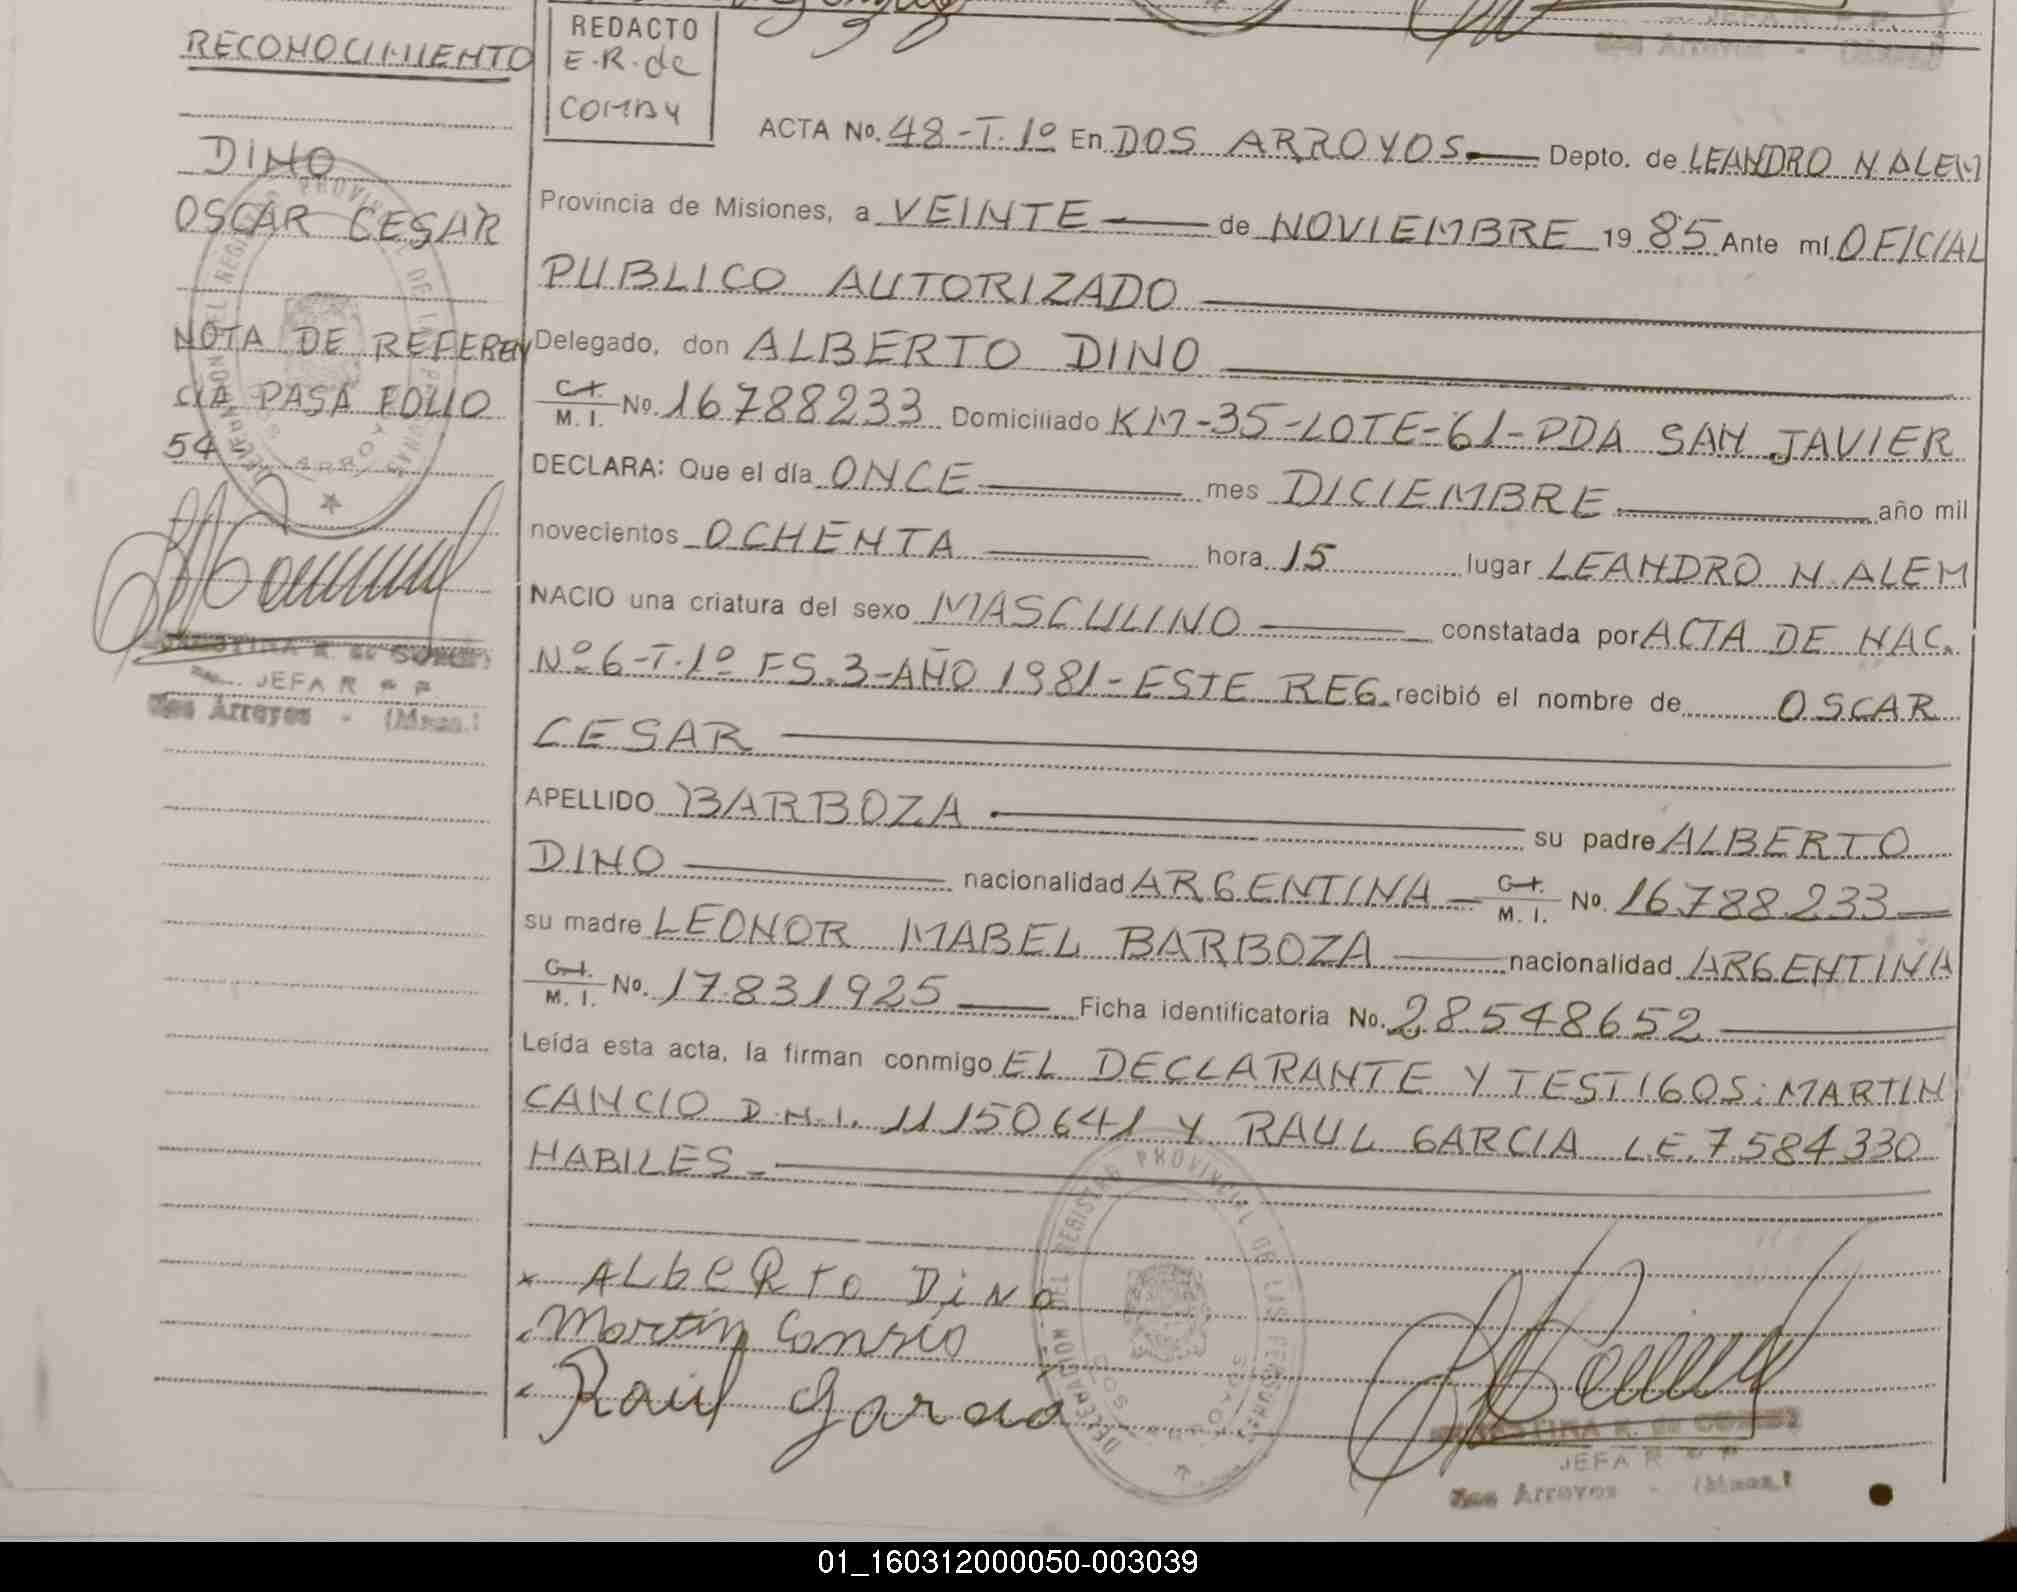 RECONOCIMIENTO
DINO
OSCAR CESAR
NOTA DE REFEREN
CIA PASA FOLIO
54
JEFA R P
Dos Arroyos - (Mnes.)
REDACTO
E.R. de
COMBY
ACTA No. 48-T.1º En DOS ARROYOS Depto. de LEANDRO N ALEM
Provincia de Misiones, a VEINTE de NOVIEMBRE 1985 Ante mí OFICIAL
PUBLICO AUTORIZADO
Delegado, don ALBERTO DINO
C.I. M. I. No. 16788233 Domiciliado KM-35-LOTE-61-PDA SAN JAVIER
DECLARA: Que el día ONCE mes DICIEMBRE año mil
novecientos OCHENTA hora 15 lugar LEANDRO N. ALEM
NACIO una criatura del sexo MASCULINO constatada por ACTA DE NAC.
Nº 6-T.1º FS.3-AÑO 1981-ESTE REG. recibió el nombre de OSCAR
CESAR
APELLIDO BARBOZA su padre ALBERTO
DINO nacionalidad ARGENTINA C.I. M. I. No. 16.788.233
su madre LEONOR MABEL BARBOZA nacionalidad ARGENTINA
C.I. M. I. No. 17.831925 Ficha identificatoria No. 28548652
Leída esta acta, la firman conmigo EL DECLARANTE Y TESTIGOS: MARTIN
CANCIO D.N.I. 11150641 Y RAUL GARCIA L.E. 7.584.330
HABILES
x ALbeRTo DiNo
Martín Cansio
Raúl Garcia
DELEGACION DEL REGISTRO PROVINCIAL DE LAS PERSONAS
DOS ARROYOS
JEFA R P
Dos Arroyos - (Mnes.)
01_160312000050-003039